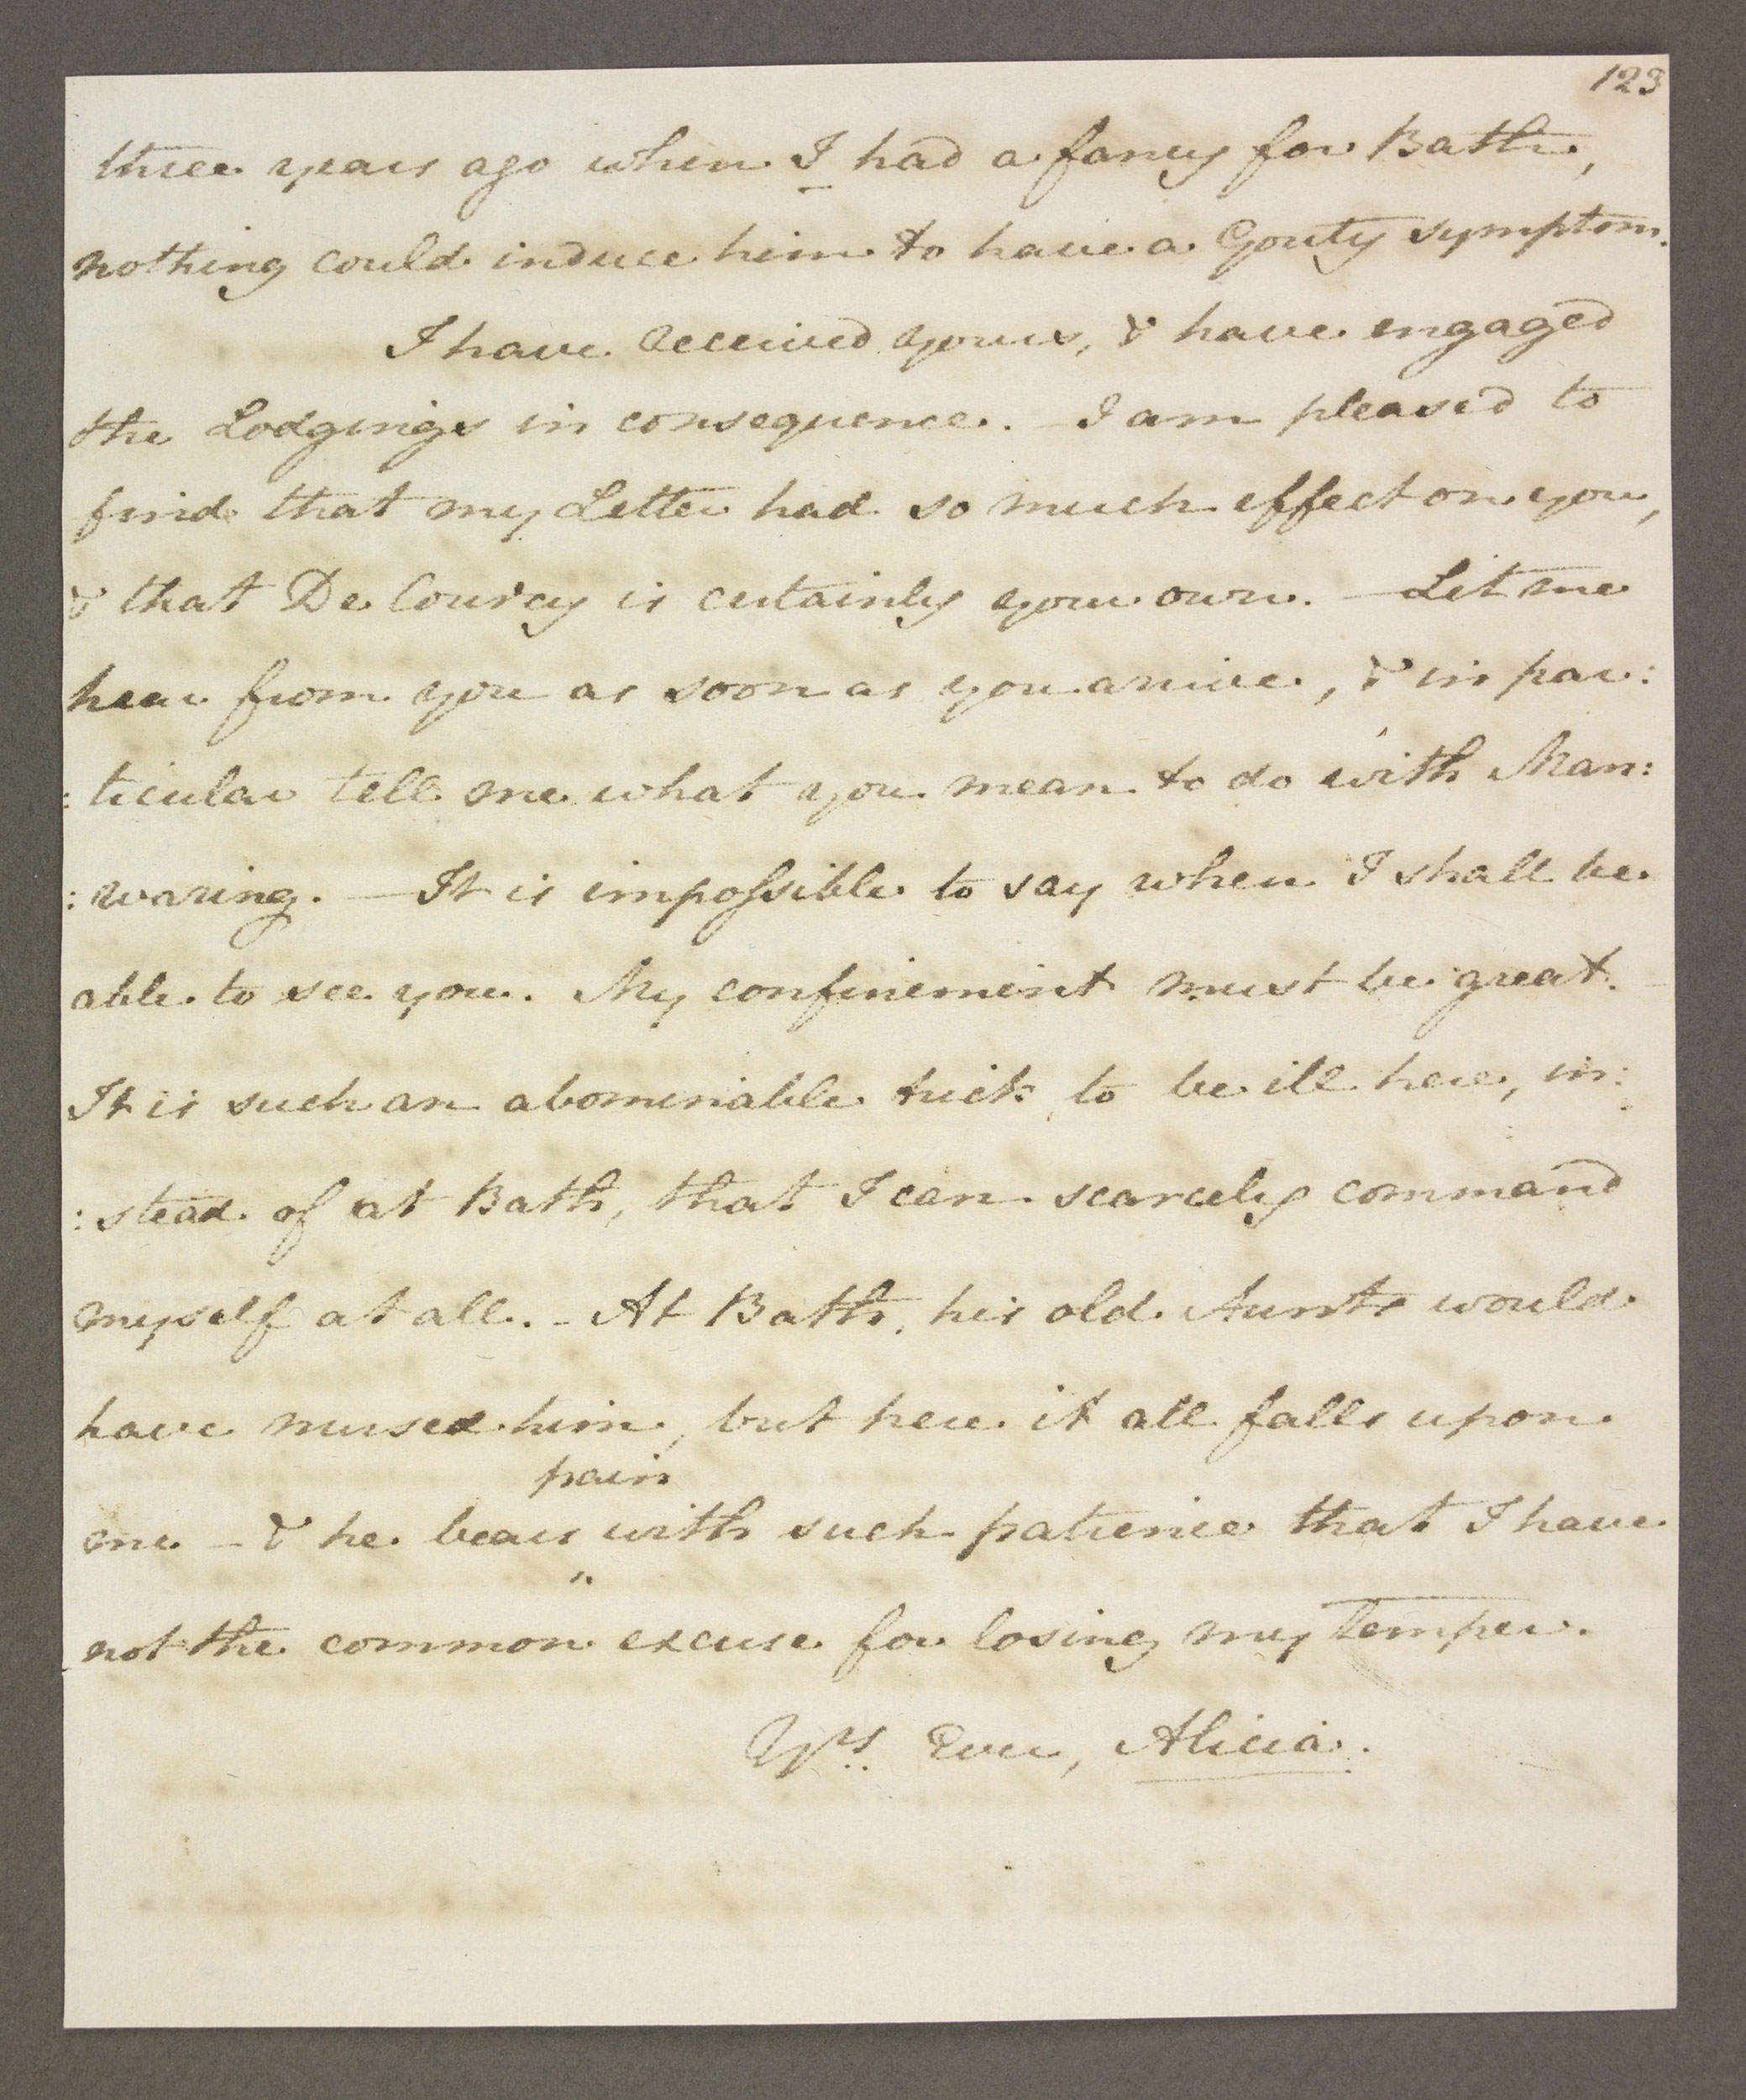 123
three years ago when I had a fancy for Bath,
nothing could induce him to have a Gouty symptom.
I have received yours, & have engaged
the Lodgings in consequence. — I am pleased to
find that my Letter had so much effect on you,
& that De Courcy is certainly your own. — Let me
hear from you as soon as you arrive, & in par:
:ticular tell me what you mean to do with Man:
:waring. — It is impossible to say when I shall be
able to see you. My confinement must be great.
It is such an abominable trick, to be ill here, in:
:stead of at Bath, that I can scarcely command
myself at all. — At Bath, his old Aunts would
have nursed him, but here it all falls upon
pain
me — & he bears with such patience that I have
not the common excuse for losing my Temper.
Yrs. Ever, Alicia.